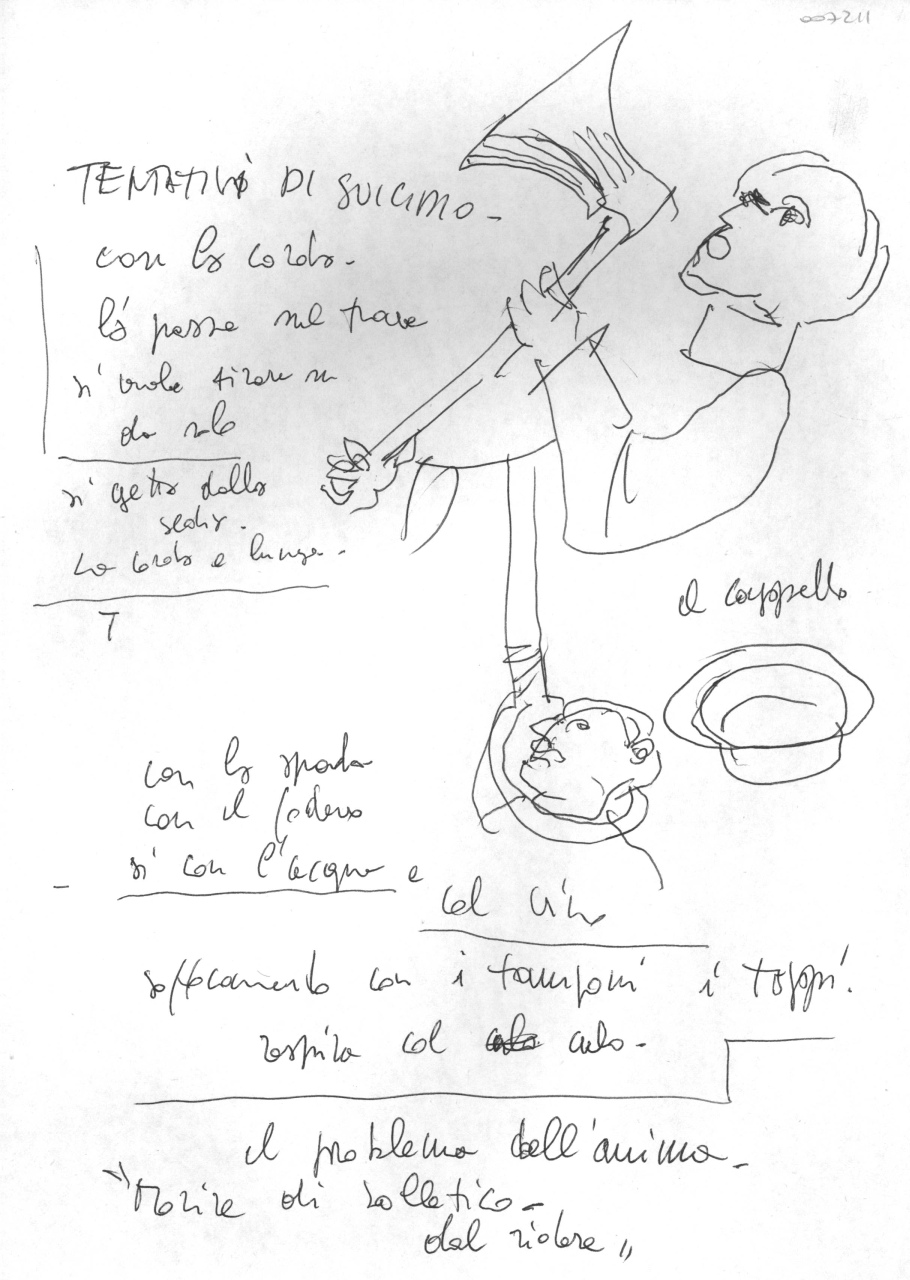 007211
TENTATIVI DI SUICIDIO -
con la corda -
la passa sul trave
si vuole tirare su
da solo
si getta dalla
sedia -
La corda e lunga -
il cappello
con la spada
con il fodero
si con l'acqua e
col vino
soffocamento con i tamponi i tappi.
respira col culo -
il problema dell'anima -
"Morire di solletico -
dal ridere "